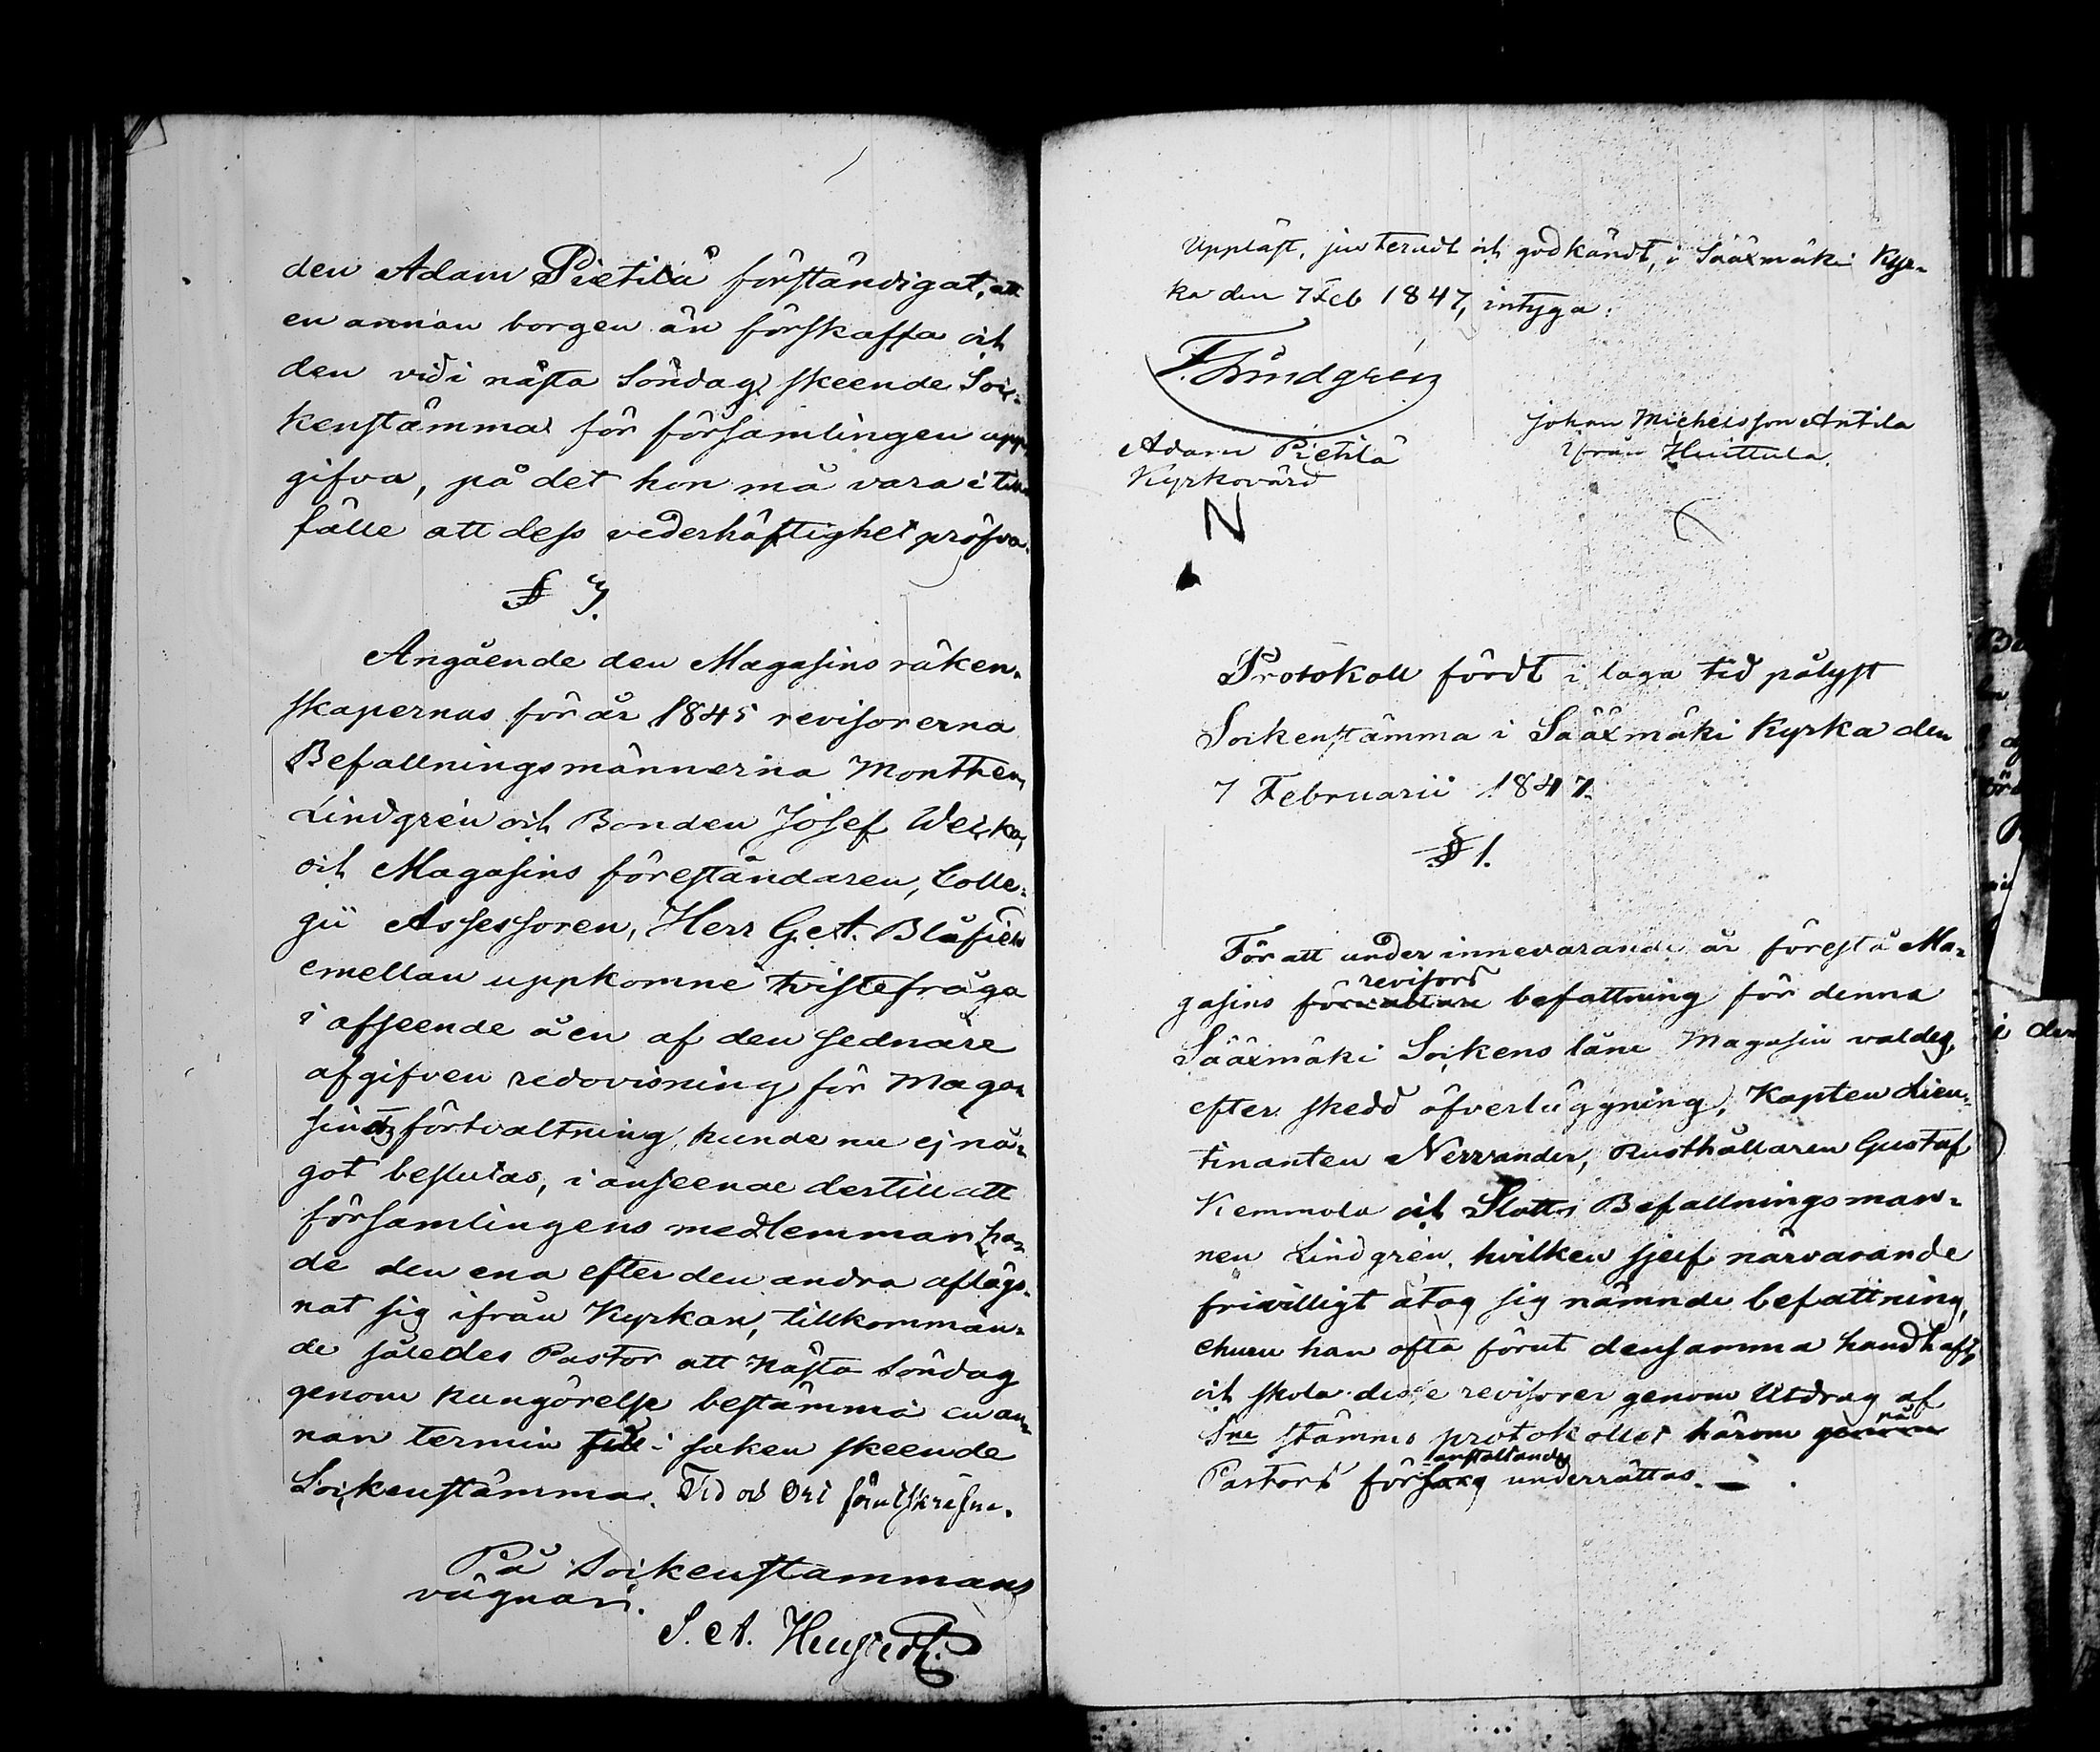 den Adam Pietilä förständigat, att
en annan borgen än förskaffa och
den vid i nästa Söndag skeende Soc-
kenstämma för församlingen upp-
gifva, på det hon må vara i till-
fälle att dess vederhäftighet pröfva.
§ 3.
Angående den Magasins räken-
skapernas för år 1845 revisorerna
Befallningsmännerna Monthen,
Lindgrén och Bonden Josef
och Magasins föreståndaren, Colle-
gii Assessoren, Herr G. A. Blåfield
emellan uppkomne tvistefråga
i afseende å en af den sednare
afgifven redovisning för Maga-
sinets förtvaltning, kunde nu ej nå-
got beslutas, i anseende dertill att
församlingens medlemmar ha-
de den ena efter den andra aflägs-
nat sig ifrån Kyrkan, tillkomman-
de således Pastor att nästa Söndag
genom kungörelse bestämma en an-
nan termin till i saken skeende
Sockenstämma. Tid och Ort förutskrefne.
På Sockenstämmans
vägnar.
S. A.
Uppläst, justeradt och godkändt, i Sääxmäki Kyr-
ka den 7 Feb 1847, intyga:
F. Lindgrén
Johan Michelsson Antila
ifrån Huittula.
Adam Pietilä
Kyrkovärd
N
Protokoll fördt i laga tid pålyst
Sockenstämma i Sääxmäki Kyrka den
7 Februarii 1847.
§ 1.
För att under innevarande år förestå Ma-
revisors
gasins förvaltare befattning för denna
Sääxmäki Sockens låne Magasin valdes,
efter skedd öfverläggning, Kapten Lieu-
tenanten Nervander, Rusthållaren Gustaf
Kemmola och Slotts Befallningsman-
nen Lindgrén, hvilken sjelf närvarande
frivilligt åtog sig nämnde befattning,
ehuru han ofta förut densamma handhaft,
och skola desse revisorer genom Utdrag af
Sne stämmo protokollet härom genom på
anstaltande
Pastors försorg underrättas. –